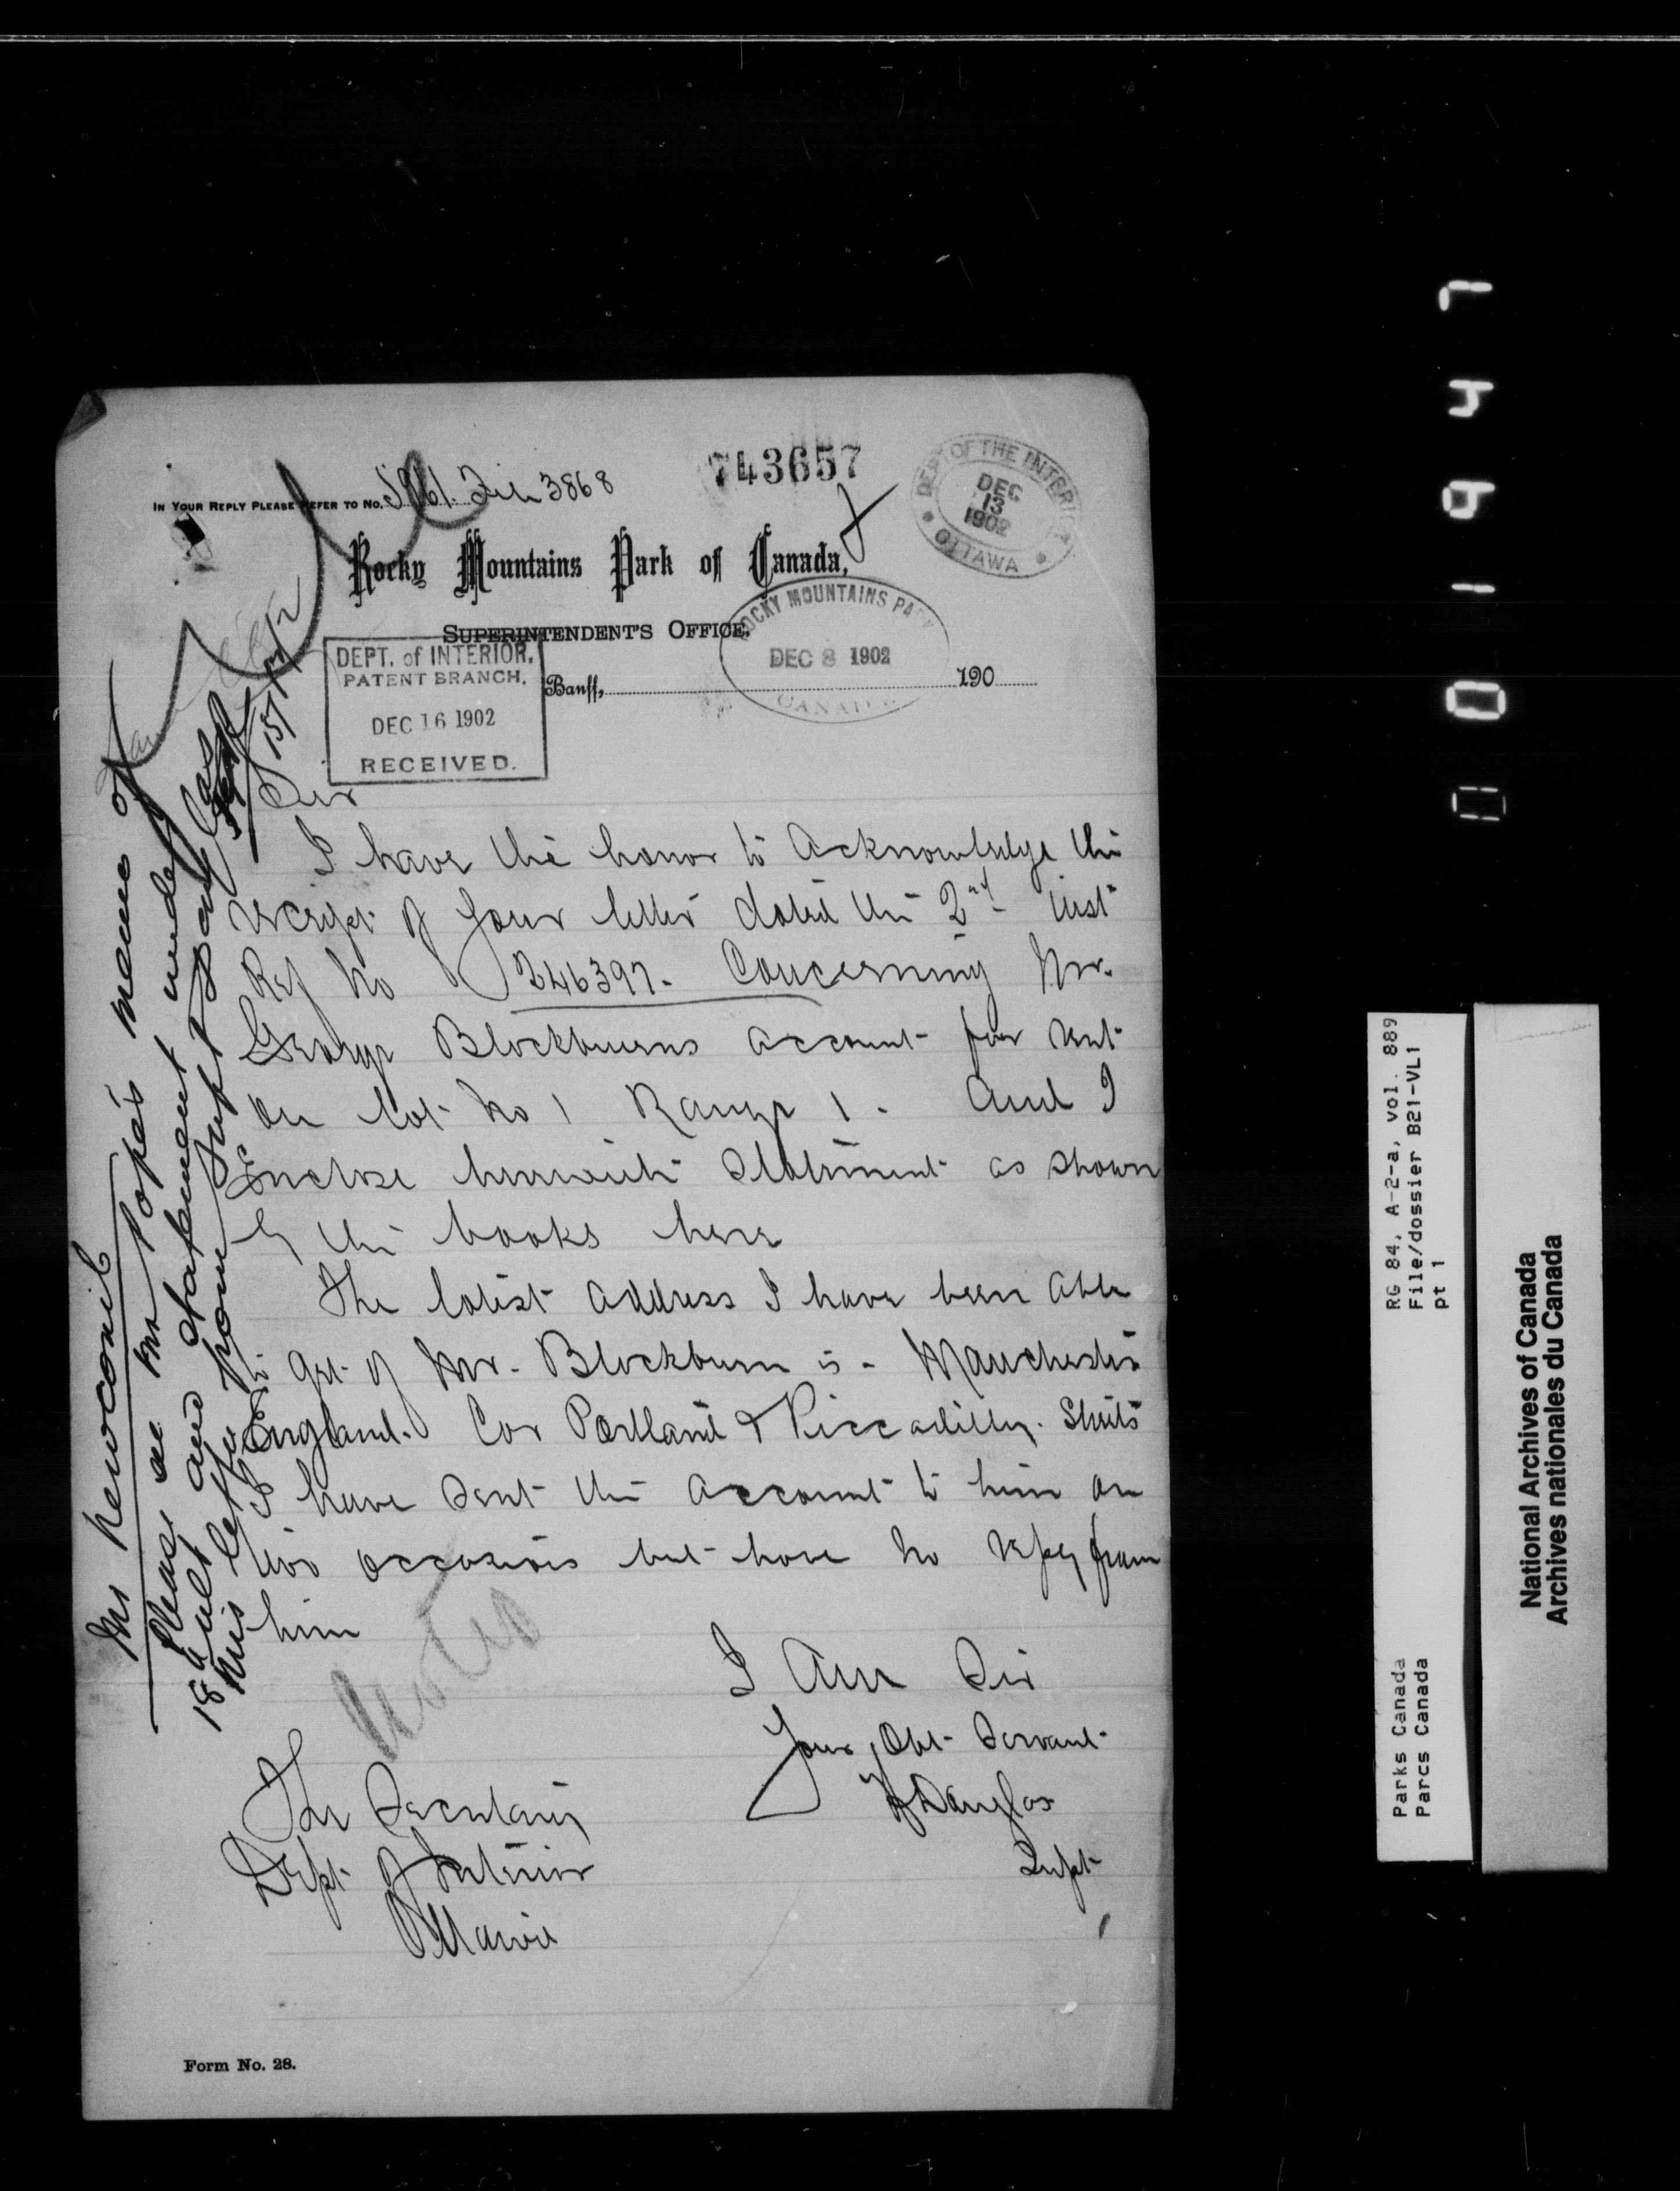 743657
IN YOUR REPLY PLEASE REFER TO No. 5961. File 3868
DEPT OF THE INTERIOR
DEC
13
1902
OTTAWA
Rocky Mountains Park of Canada,
SUPERINTENDENT'S OFFICE.
ROCKY MOUNTAINS PARK
DEC 8 1902
CANADA
Banff, 190
DEPT. of INTERIOR.
PATENT BRANCH.
DEC 16 1902
RECEIVED.
Sir
I have the honor to Acknowledge the
receipt of your letter dated the 2nd inst
Ref No 246397. Concerning Mr.
George Blockburns account for rent
on lot No 1 Range 1. And I
Enclose herewith Statement as shown
by the books here
The latest address I have been able
to get of Mr. Blockburn is - Manchester
England. Cor Portland & Piccadilly. Streets
I have sent the account to him on
two occasions but have no reply from
him
I Am Sir
Your Obt Servant
H Douglas
Supt
The Secretary
Dept of Interior
Ottawa
Noted
Mr Newcomb
Please see Mr Pope's memo of
18th ult and statement under
his letter from Supt
15/12/2
Form No. 28.
RG 84, A-2-a, vol. 889
File/dossier B21-VL1
pt 1
Parks Canada
Parcs Canada
National Archives of Canada
Archives nationales du Canada